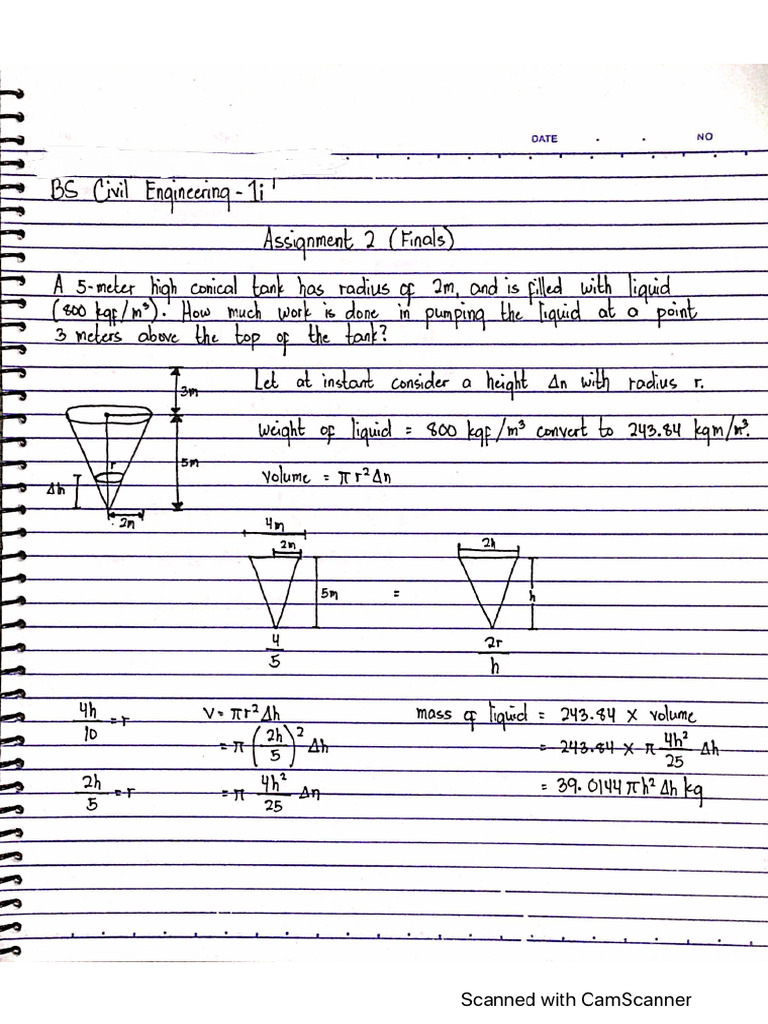 DATE NO
BS Civil Engineering - 1i
Assignment 2 (Finals)
A 5-meter high conical tank has radius of 2m, and is filled with liquid
(800 kgf/m³). How much work is done in pumping the liquid at a point
3 meters above the top of the tank?
3m
Let at instant consider a height Δn with radius r.
weight of liquid = 800 kgf/m³ convert to 243.84 kgm/m³.
r
5m
volume = πr²Δn
Δh
2m
4m
2m
2h
5m
=
h
4/5
2r/h
4h/10 = r
V = πr²Δh
mass of liquid = 243.84 x volume
= π(2h/5)² Δh
= 243.84 x π 4h²/25 Δh
2h/5 = r
= π 4h²/25 Δn
= 39.0144πh²Δh kg
Scanned with CamScanner